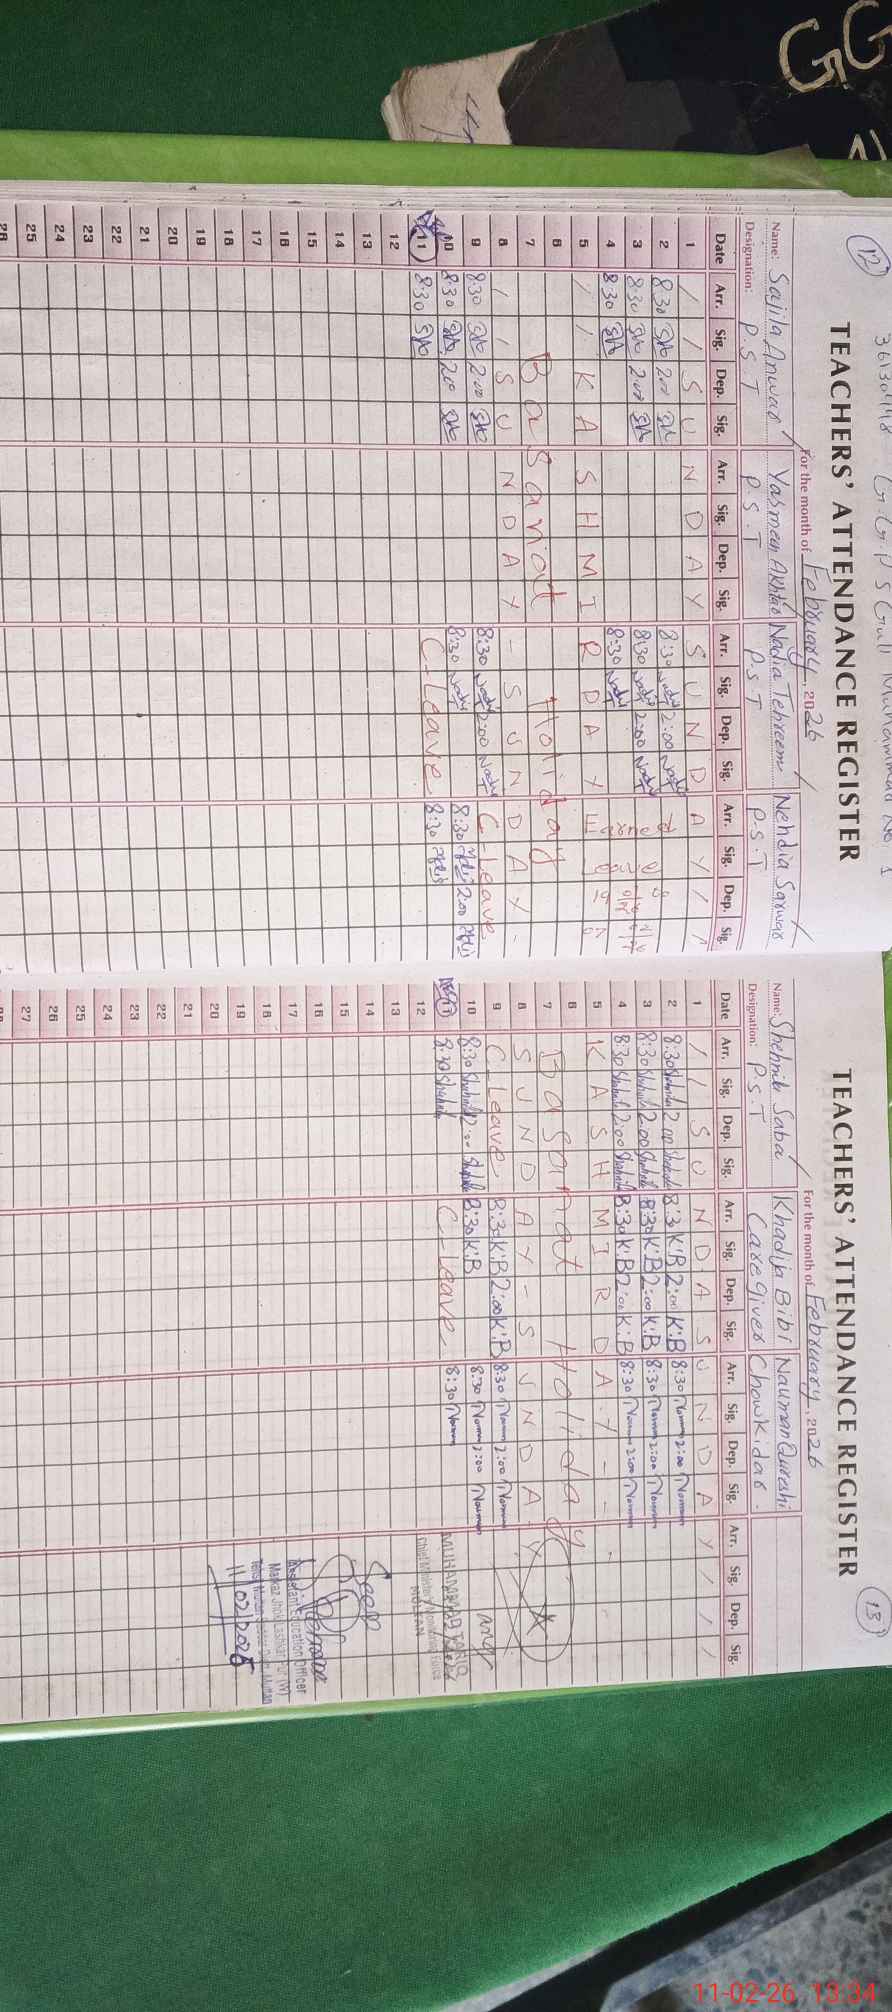 36130448 G.G.P.S Gull Muhammad No 1
12
TEACHERS' ATTENDANCE REGISTER
For the month of February, 2026
Name: Sajila Anwar Yasmen Akhtar Nadia Tehreem Nehdia Sarwar
Designation: P.S.T P.S.T P.S.T P.S.T
Date Arr. Sig. Dep. Sig. Arr. Sig. Dep. Sig. Arr. Sig. Dep. Sig. Arr. Sig. Dep. Sig.
1 / / S U N D A Y S U N D A Y / /
2 8:30 2:00 8:30 2:00 Earned
3 8:30 2:00 8:30 2:00 Leave
4 8:30 8:30
5 / / K A S H M I R D A Y
6
7 Basanat Holiday
8 / / S U N D A Y - S U N D A Y -
9 8:30 2:00 8:30 2:00 C-Leave
10 8:30 2:00 8:30 8:30 2:00
11 8:30 C-Leave 8:30
12
13
14
15
16
17
18
19
20
21
22
23
24
25
26
13
TEACHERS' ATTENDANCE REGISTER
For the month of February, 2026
Name: Shehnila Saba Khadija Bibi Nauman Qureshi
Designation: P.S.T Caregiver Chowkidar.
Date Arr. Sig. Dep. Sig. Arr. Sig. Dep. Sig. Arr. Sig. Dep. Sig. Arr. Sig. Dep. Sig.
1 / / S U N D A S U N D A Y / / /
2 8:30 2:00 8:30 K:B 2:00 K:B 8:30 2:00
3 8:30 2:00 8:30 K:B 2:00 K:B 8:30 2:00
4 8:30 2:00 8:30 K:B 2:00 K:B 8:30 2:00
5 K A S H M I R D A Y - -
6
7 Basanat Holiday
8 S U N D A Y - S U N D A Y
9 C-Leave 8:30 K:B 2:00 K:B 8:30 2:00
10 8:30 2:00 8:30 K:B 8:30 2:00
11 8:30 C-Leave 8:30
12
13
14
15
16
17
18
19
20
21
22
23
24
25
26
27
MUHAMMAD TARIQ
Chief Minister's Monitoring Force
MULTAN
Seen
Assistant Education Officer
Markaz Jhok Lashkar Pur (W)
11/02/2026
11-02-26 13:34